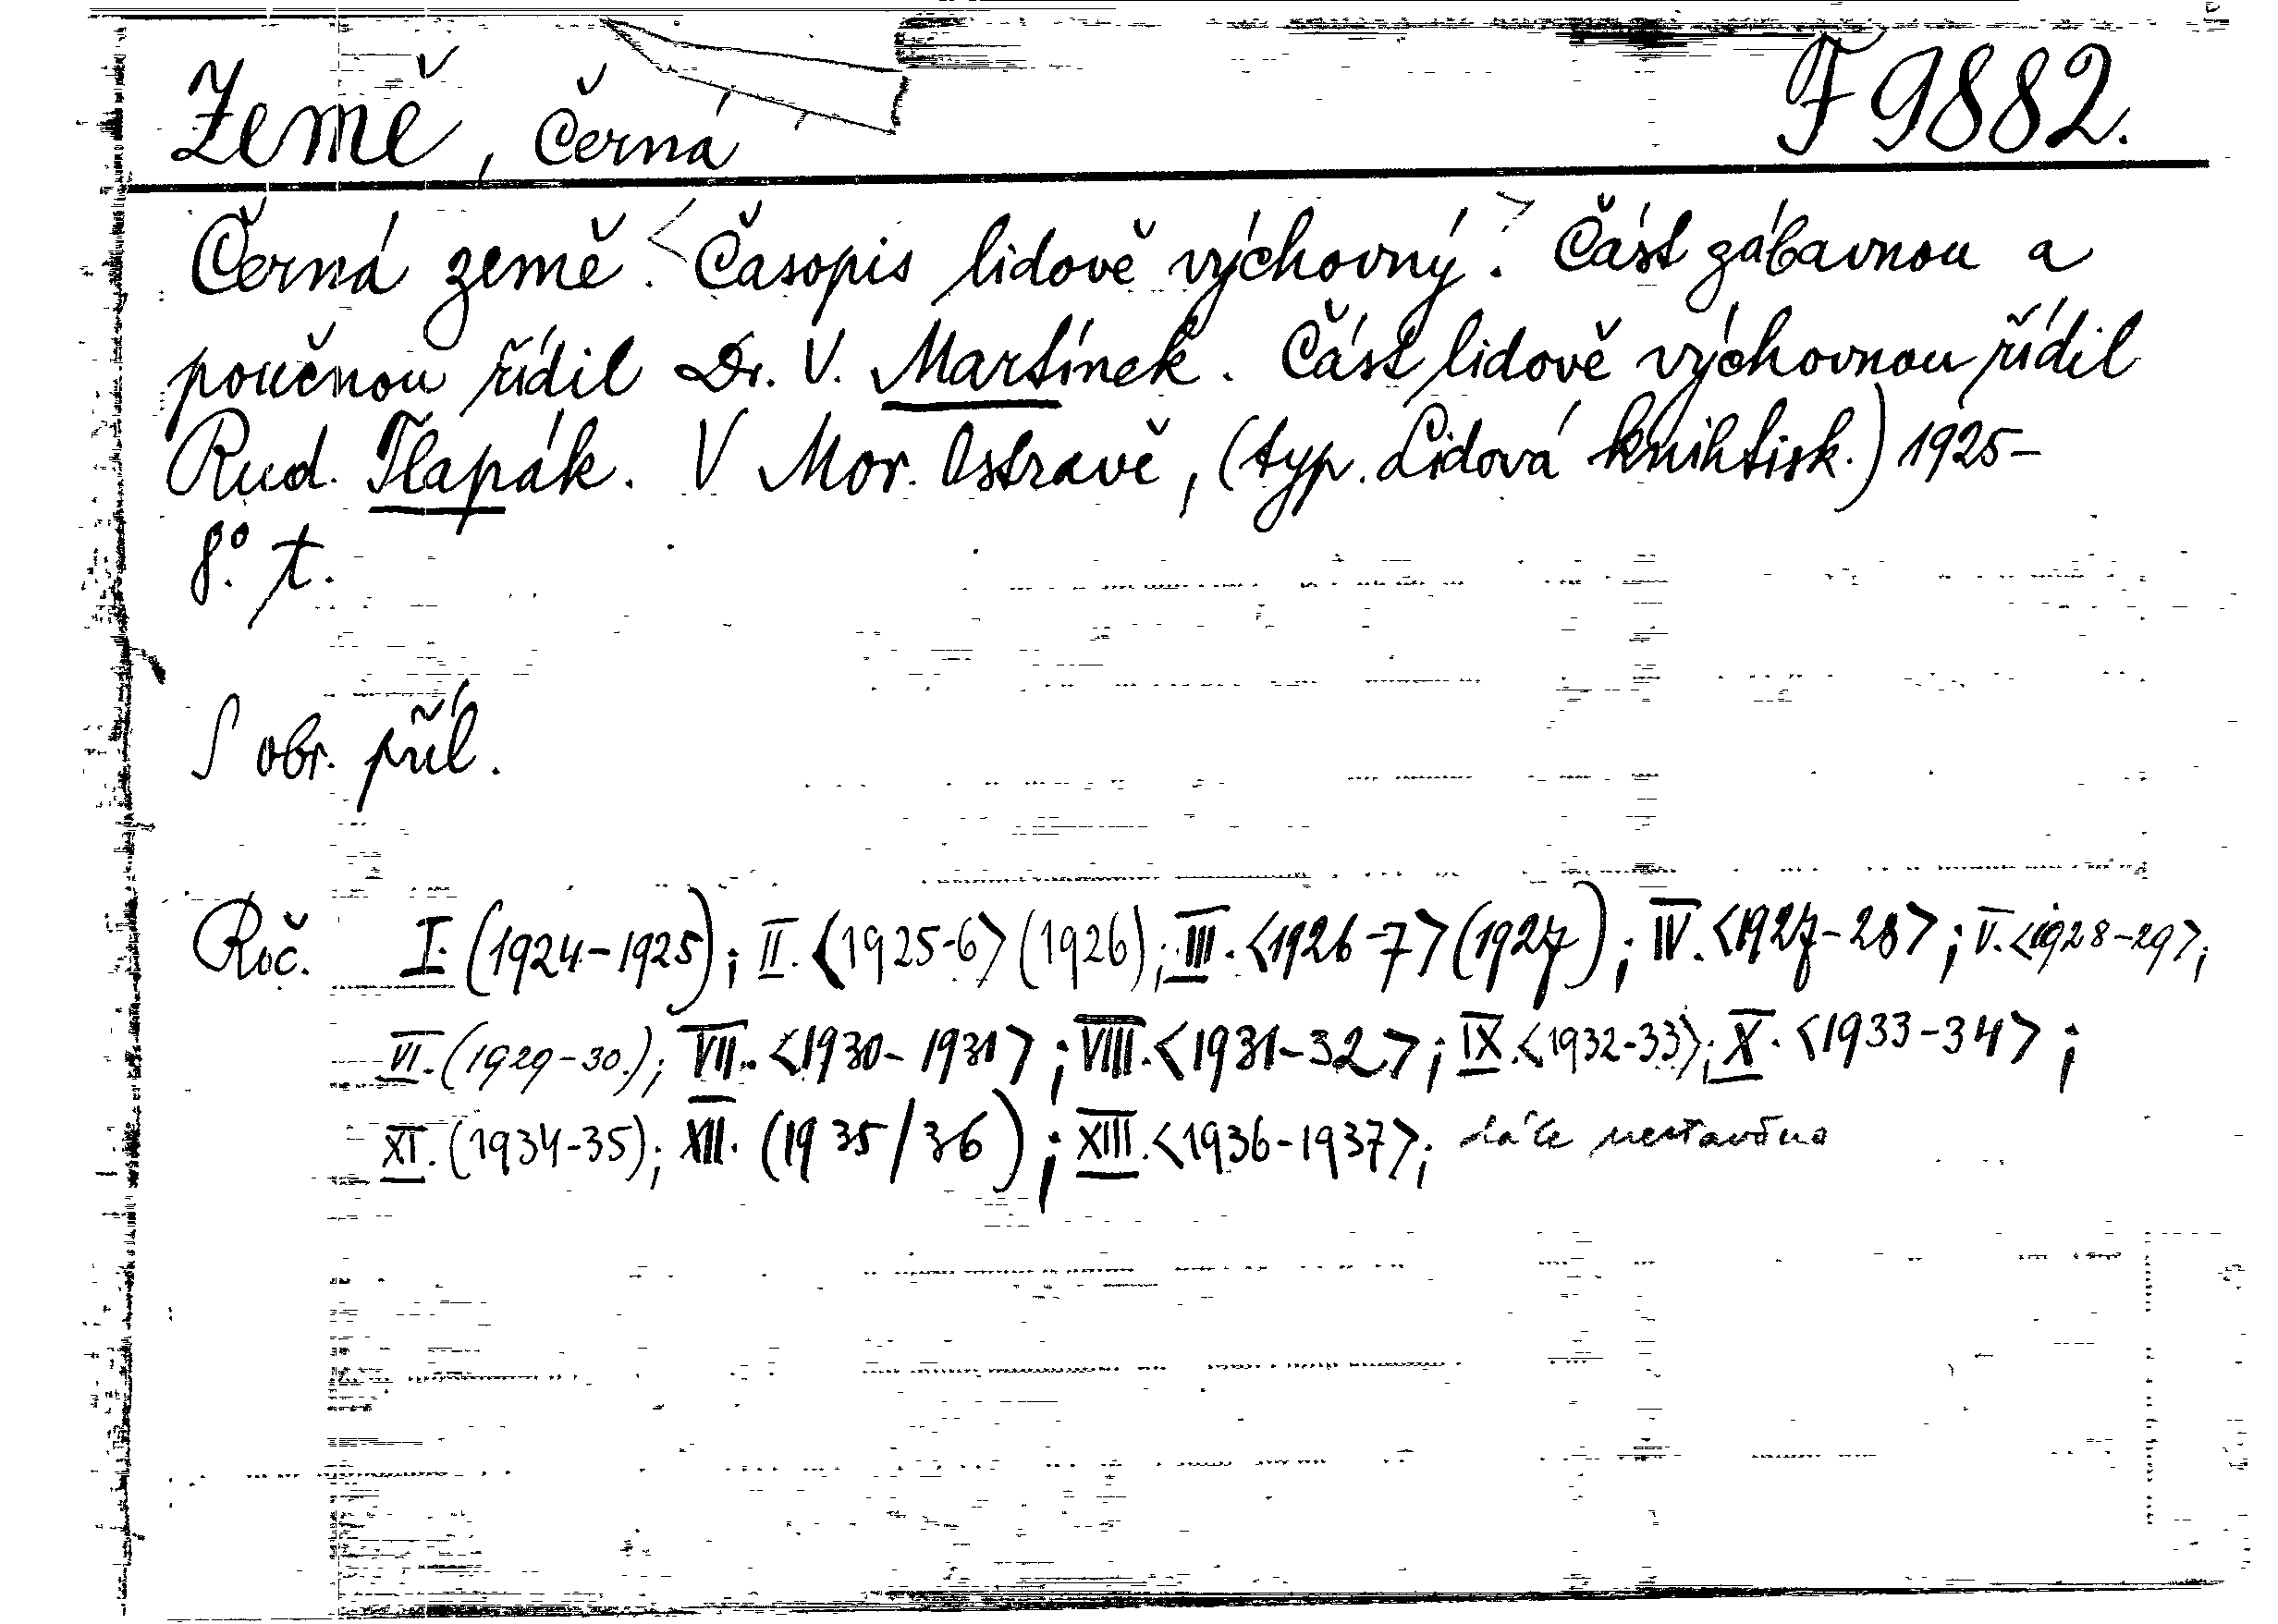 Země, Černá F 9882.
Černá země. <Časopis lidově výchovný.> Část zábavnou a
poučnou řídil Dr. V. Martínek. Část lidově výchovnou řídil
Rud. Tlapák. V Mor. Ostravě, (typ. Lidová knihtisk.) 1925–
8.° t.
S obr. příl.
Roč. I. (1924–1925); II. <1925-6> (1926); III. <1926-7> (1927); IV. <1927-28>; V. <1928-29>;
VI. (1929-30.); VII. <1930-1931>; VIII. <1931-32>; IX. <1932-33>; X. <1933-34>;
XI. (1934-35); XII. (1935/36); XIII. <1936-1937>; dále